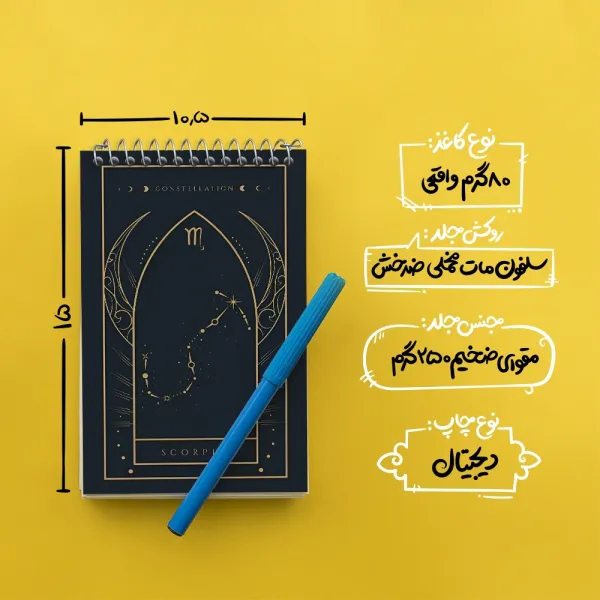 ۱۰٫۵
۱۵
CONSTELLATION
♏
SCORPI
نوع کاغذ:
۸۰گرم واقعی
روکش جلد:
سلفون مات مخملی ضدخش
جنس جلد:
مقوای ضخیم ۲۵۰گرم
نوع چاپ:
دیجیتال